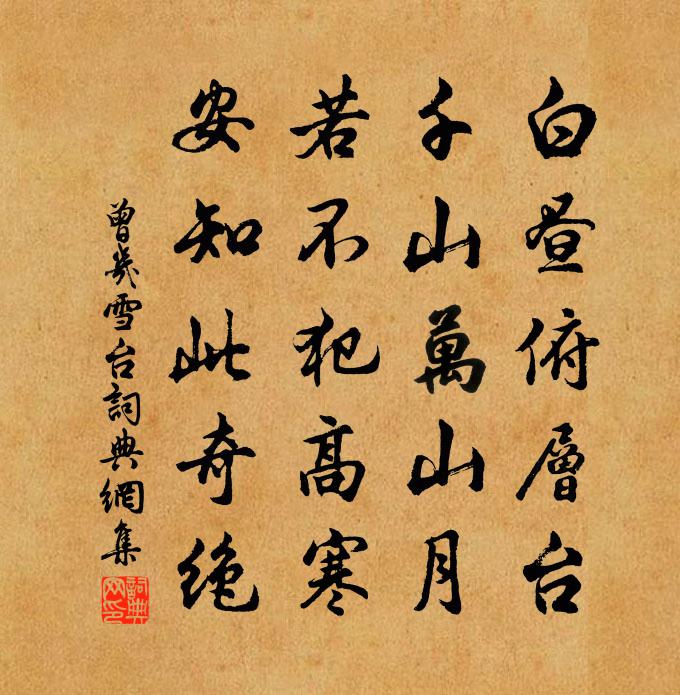 白昼俯層台
千山萬山月
若不犯高寒
安知此奇绝
曾幾雪台詞典網集
詞典網印